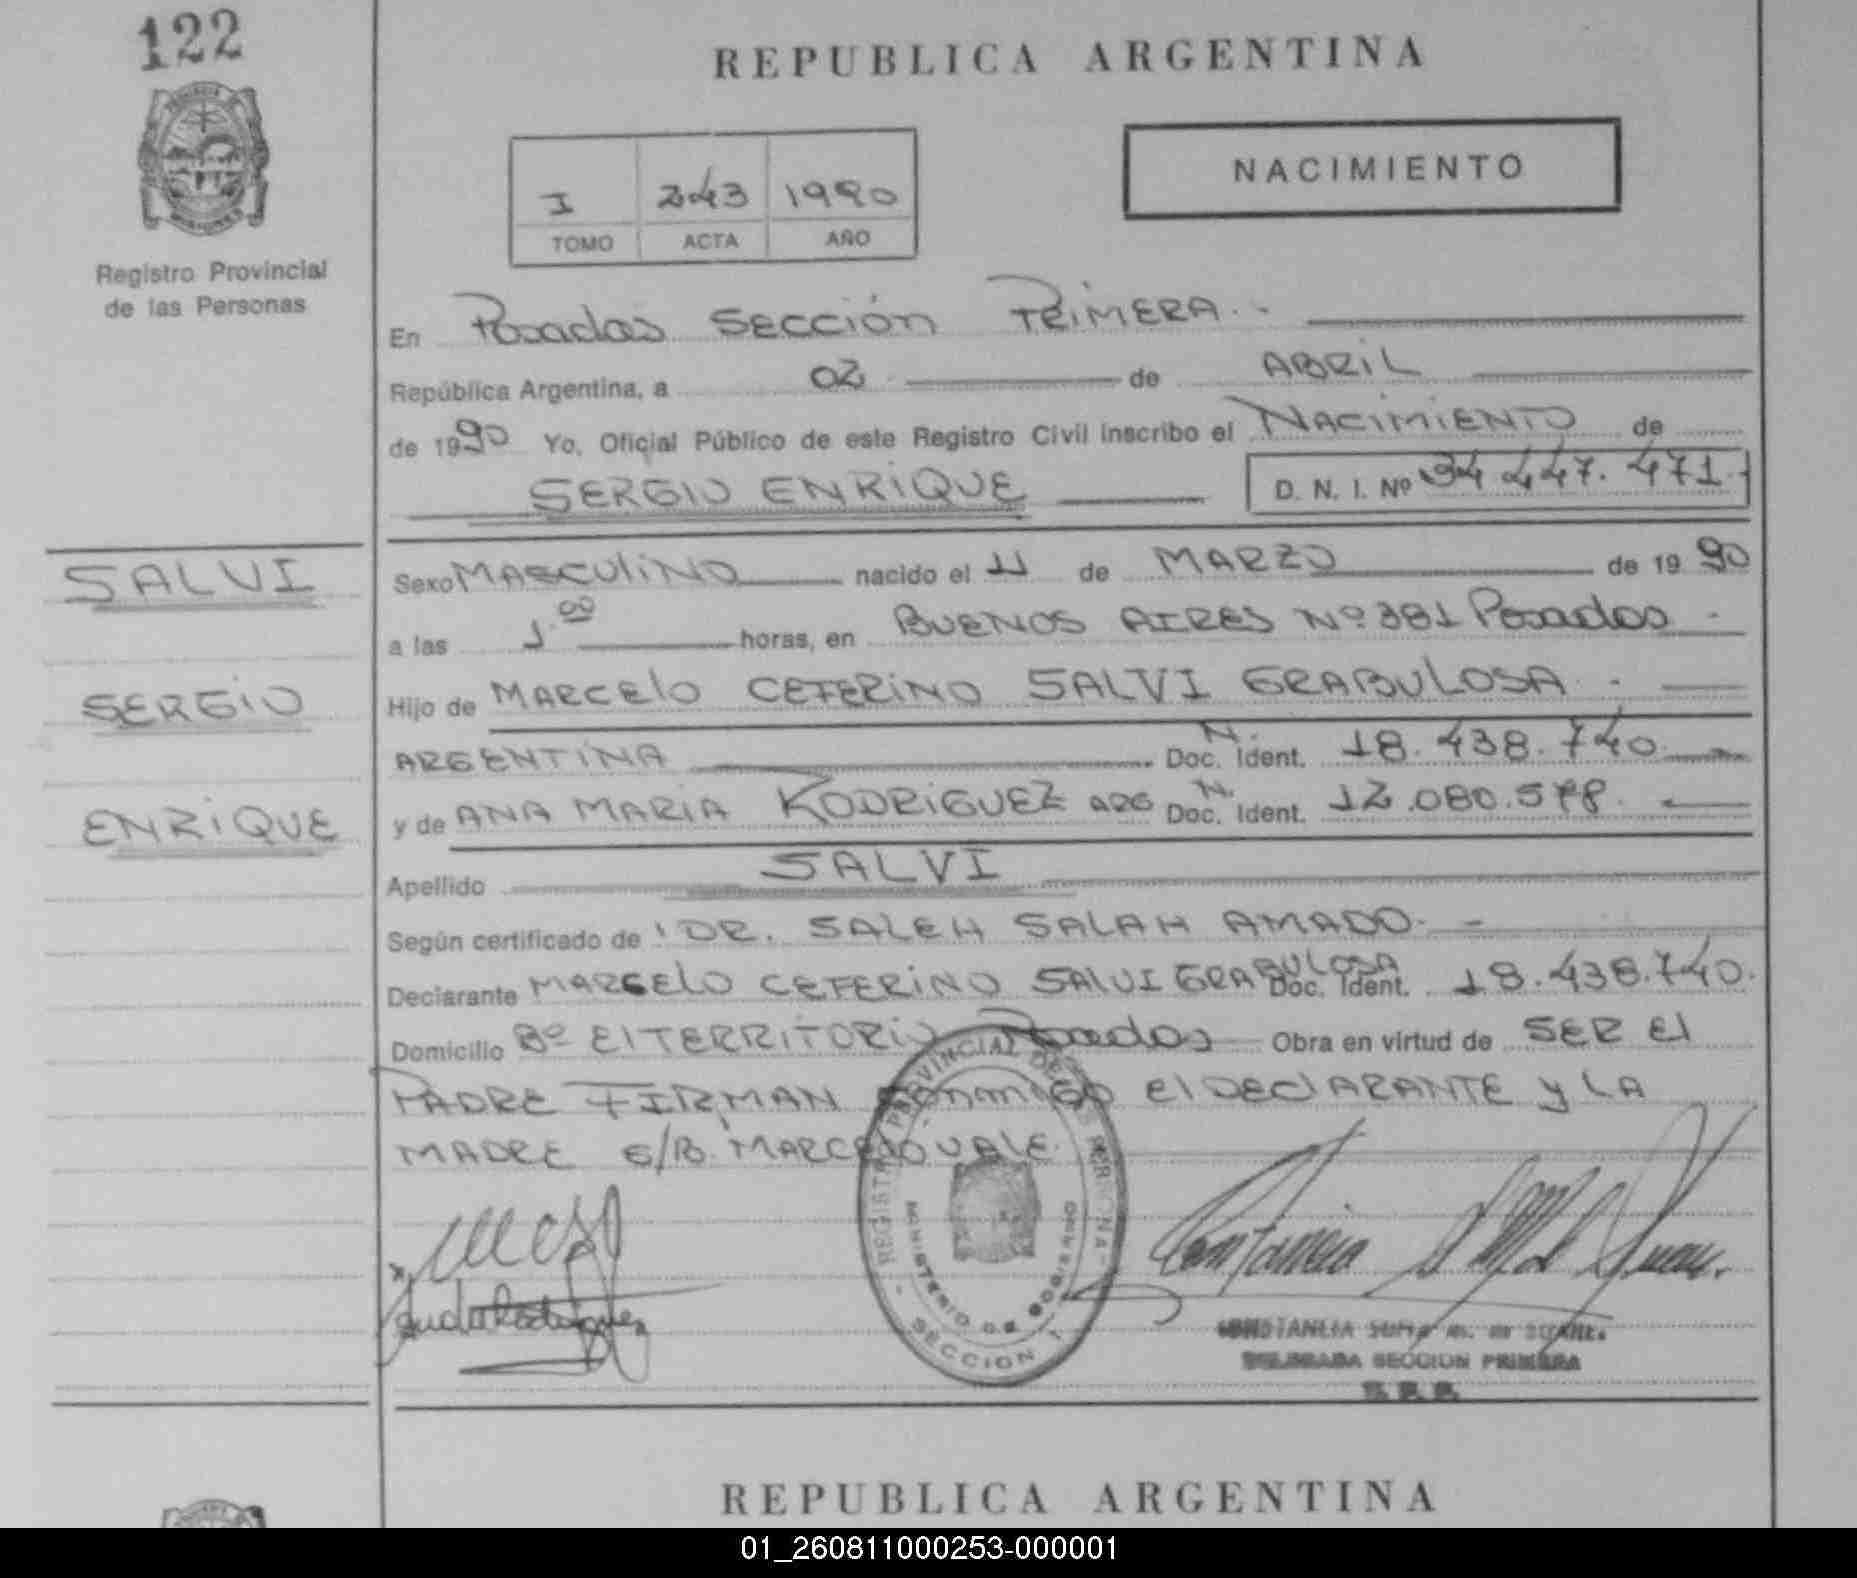 122
REPUBLICA ARGENTINA
NACIMIENTO
I 243 1990
TOMO ACTA AÑO
Registro Provincial
de las Personas
En Posadas SECCIÓN PRIMERA.-
República Argentina, a 02 de ABRIL
de 1990 Yo, Oficial Público de este Registro Civil inscribo el NACIMIENTO de
SERGIO ENRIQUE D. N. I. Nº 34.447.471.
SALVI
SERGIO
ENRIQUE
Sexo MASCULINO nacido el 11 de MARZO de 19 90
a las 1.00 horas, en BUENOS AIRES Nº 381 Posadas -
Hijo de MARCELO CEFERINO SALVI GRABULOSA.-
ARGENTINA Doc. N. Ident. 18.438.740.
y de ANA MARIA RODRIGUEZ ARG Doc. N. Ident. 12.080.578.
Apellido SALVI
Según certificado de DR. SALEH SALAH AMADO.-
Declarante MARCELO CEFERINO SALVI GRABULOSA Doc. Ident. 18.438.740.
Domicilio Bº El TERRITORIO Posadas Obra en virtud de SER El
PADRE FIRMAN conmigo El DECLARANTE y LA
MADRE E/R. MARCELO VALE.
REGISTRO PROVINCIAL DE LAS PERSONAS
MINISTERIO DE GOBIERNO
SECCION 1
DELEGADA SECCION PRIMERA
REPUBLICA ARGENTINA
01_260811000253-000001